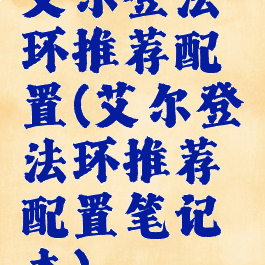 艾尔登法
环推荐配
置(艾尔登
法环推荐
配置笔记
本)